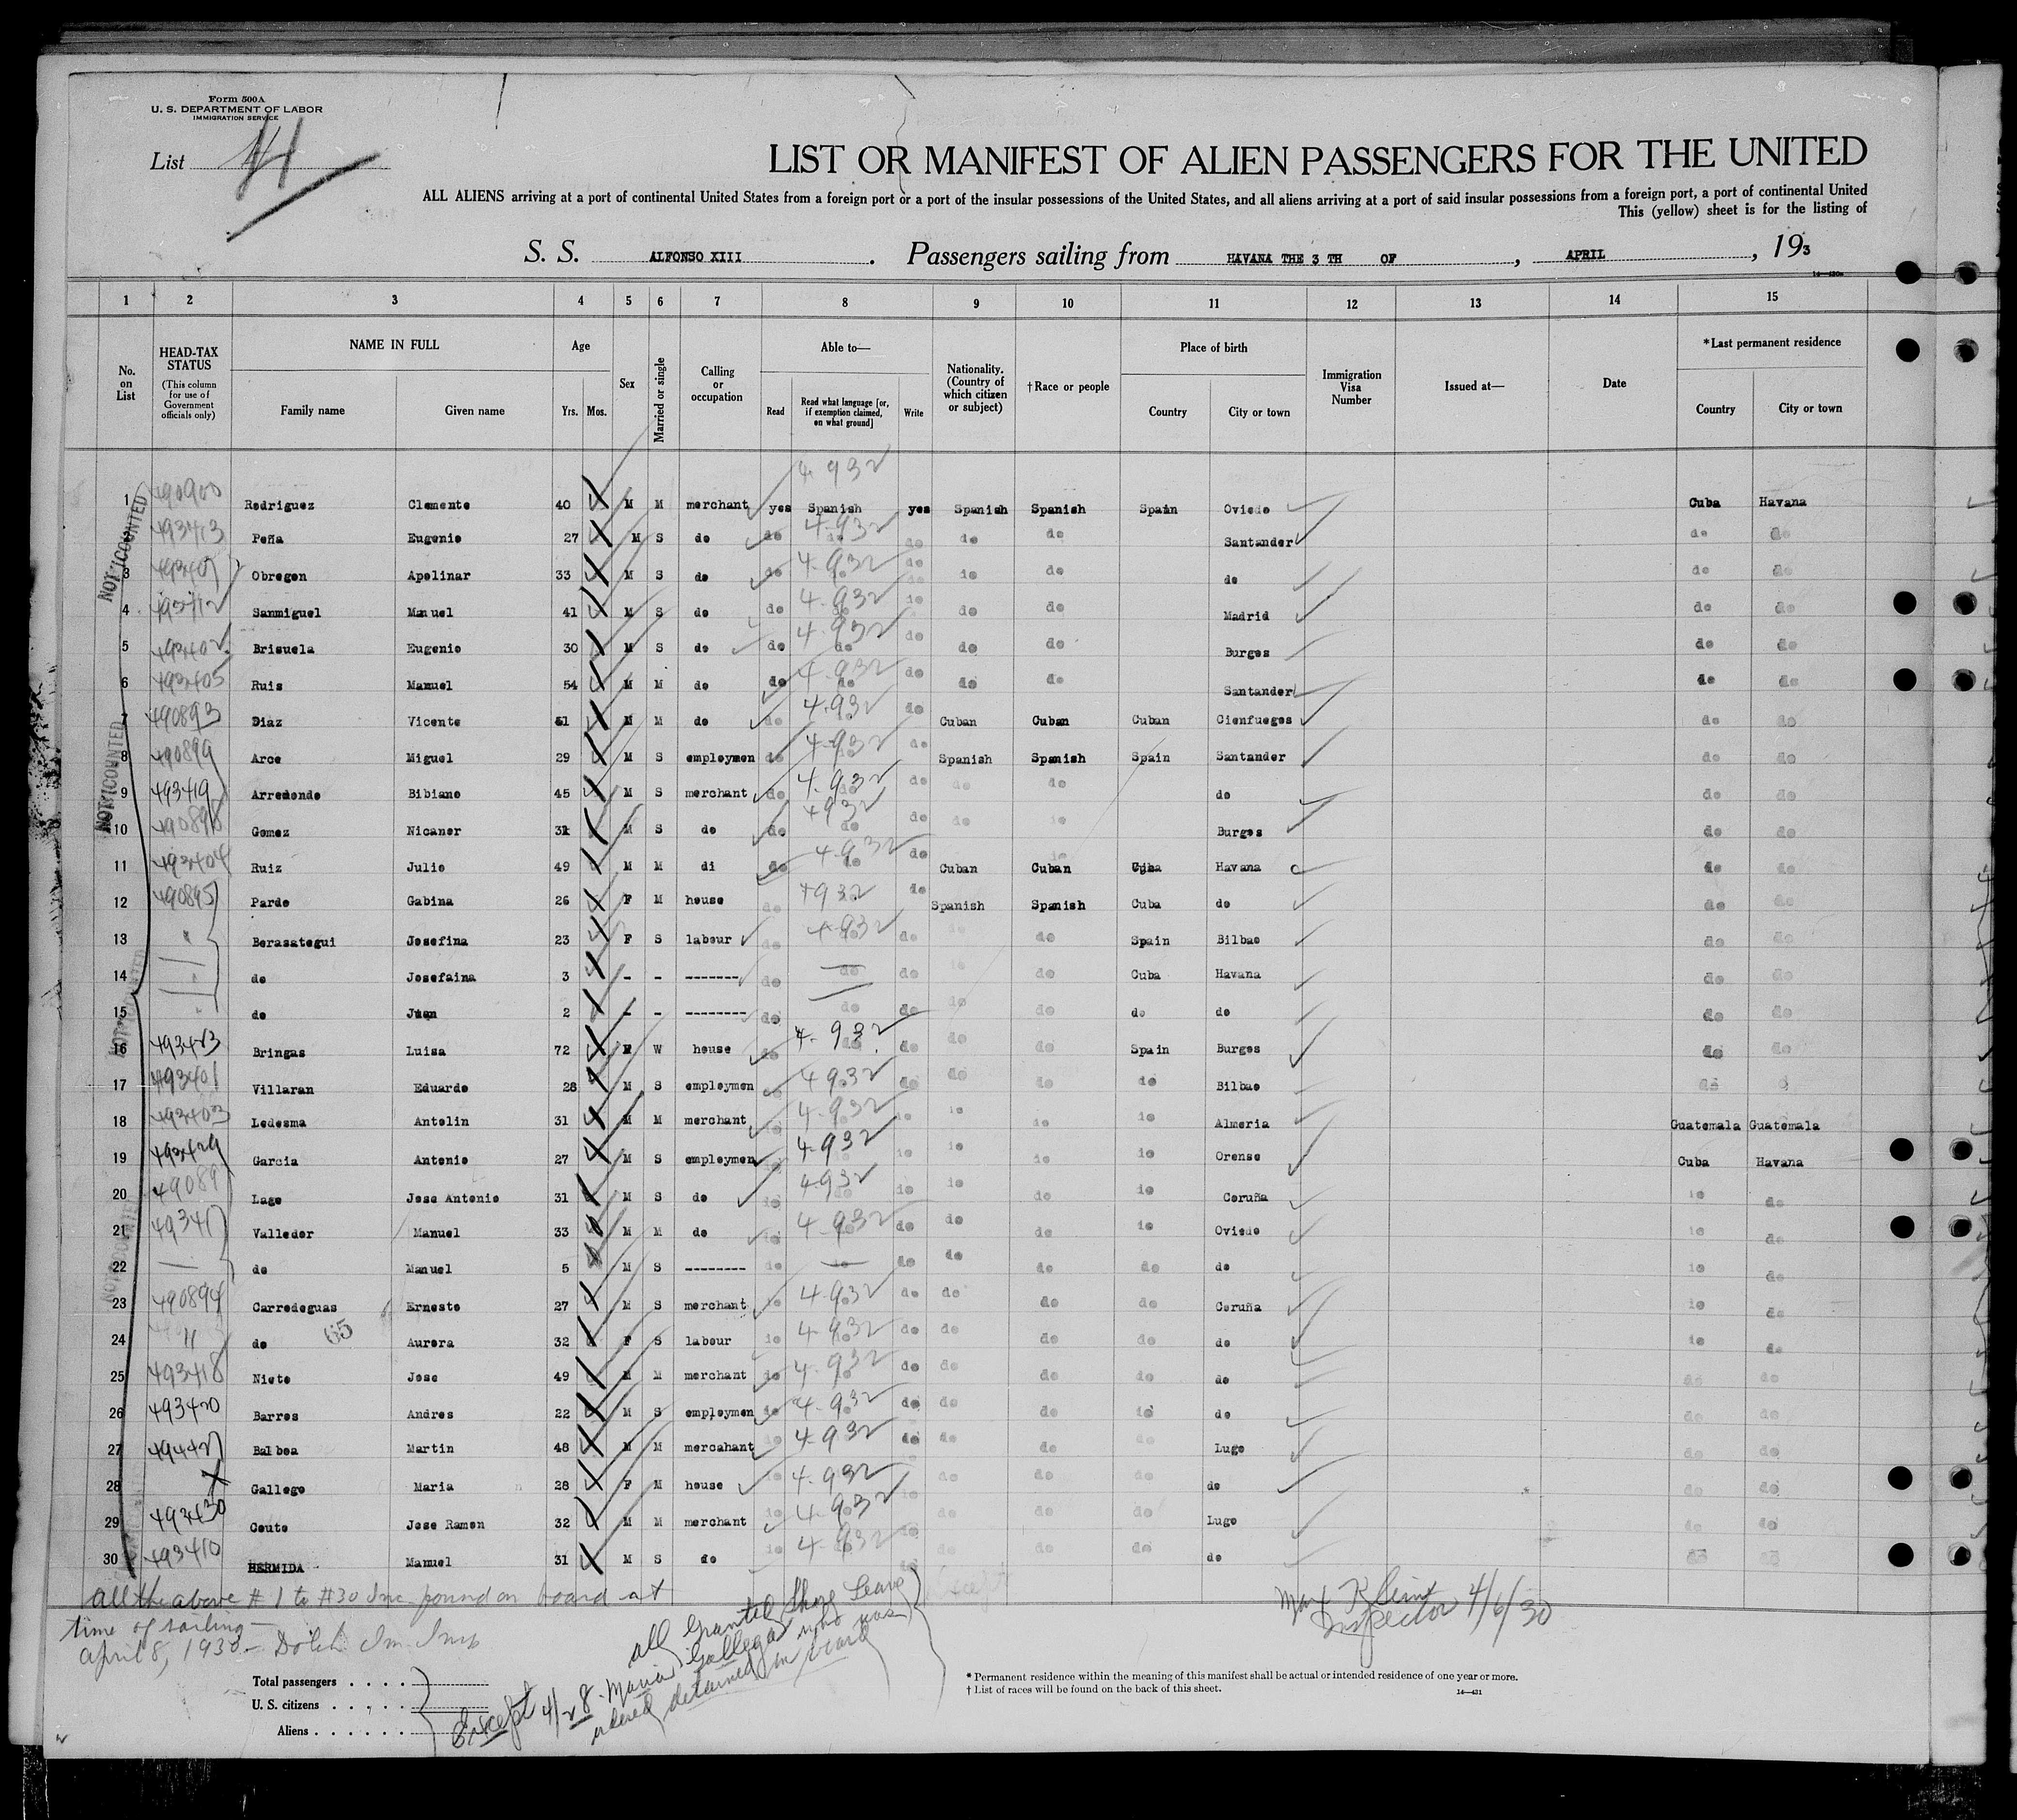 Form 500A
U. S. DEPARTMENT OF LABOR
IMMIGRATION SERVICE
List 4
LIST OR MANIFEST OF ALIEN PASSENGERS FOR THE UNITED
ALL ALIENS arriving at a port of continental United States from a foreign port or a port of the insular possessions of the United States, and all aliens arriving at a port of said insular possessions from a foreign port, a port of continental United
This (yellow) sheet is for the listing of
S. S. ALFONSO XIII. Passengers sailing from HAVANA THE 3 TH OF, APRIL, 193
1 2 3 4 5 6 7 8 9 10 11 12 13 14 15
No. on List
HEAD-TAX STATUS (This column for use of Government officials only)
NAME IN FULL
Family name Given name
Age
Yrs. Mos.
Sex
Married or single
Calling or occupation
Able to—
Read
Read what language [or, if exemption claimed, on what ground]
Write
Nationality. (Country of which citizen or subject)
†Race or people
Place of birth
Country City or town
Immigration Visa Number
Issued at—
Date
*Last permanent residence
Country City or town
1 490900 Rodriguez Clemente 40 M M merchant yes Spanish 4-932 yes Spanish Spanish Spain Oviedo Cuba Havana
2 493413 Peña Eugenio 27 M S do do 4-932 do do do Santander do do
3 Obregon Apolinar 33 M S do do 4-932 do do do do do do
4 493412 Sanmiguel Manuel 41 M S do do 4-932 do do do Madrid do do
5 493402 Brisuela Eugenio 30 M S do do 4-932 do do do do Burgos do do
6 493405 Ruis Manuel 54 M M do do 4-932 do do do do Santander do do
7 490893 Diaz Vicente 51 M M do do 4-932 do Cuban Cuban Cuban Cienfuegos do do
8 490899 Arce Miguel 29 M S employmen do 4-932 do Spanish Spanish Spain Santander do do
9 493419 Arredondo Bibiano 45 M S merchant do 4-932 do do do do do do
10 490898 Gomez Nicanor 31 M S do do 4932 do do do do Burgos do do
11 493404 Ruiz Julio 49 M M di do 4-932 do do Cuban Cuban Cuba Havana do do
12 490895 Pardo Gabina 26 F M house do 4932 do Spanish Spanish Cuba do do do
13 " Berasategui Josefina 23 F S labour do 4-932 do do do Spain Bilbao do do
14 do Josefaina 3 - - ------- do do do do do Cuba Havana do do
15 do Juan 2 - - -------- do do do do do do do do do
16 493423 Bringas Luisa 72 F W house do 4-932 do do do do Spain Burgos do do
17 493401 Villaran Eduardo 28 M S employmen do 4-932 do do do do Bilbao do
18 493403 Ledesma Antolin 31 M M merchant do 4-932 do do do do Almeria Guatemala Guatemala
19 493429 Garcia Antonio 27 M S employmen do 4-932 do do do do Orense Cuba Havana
20 490891 Lago Jose Antonio 31 M S do do 4932 do do do do do Coruña do do
21 Valledor Manuel 33 M M do do 4-932 do do do do Oviedo do do
22 do Manuel 5 M S -------- do do do do do do do do do
23 490894 Carredeguas Ernesto 27 M S merchant do 4-932 do do do do Coruña do do
24 " do 65 Aurora 32 F S labour do 4-932 do do do do do do do
25 493418 Nieto Jose 49 M M merchant do 4-932 do do do do do do do
26 493420 Barros Andres 22 M S employmen do 4-932 do do do do do do do
27 Balboa Martin 48 M M mercahant do 4-932 do do do do Lugo do do
28 X Gallego Maria 28 F M house do 4-932 do do do do do do do
29 493430 Couto Jose Ramon 32 M M merchant do 4-932 do do do do Lugo do do
30 493410 HERMIDA Manuel 31 M S do do 4-932 do do do do do do do
NOT COUNTED
NOT COUNTED
All the above # 1 to #30 Inc found on board at
time of sailing —
April 8, 1930 —
All Granted Shore Leave
Except 4/28. Maria Gallego who was
ordered detained on board
Inspector 4/6/30
Total passengers
U. S. citizens
Aliens
* Permanent residence within the meaning of this manifest shall be actual or intended residence of one year or more.
† List of races will be found on the back of this sheet.
14—431